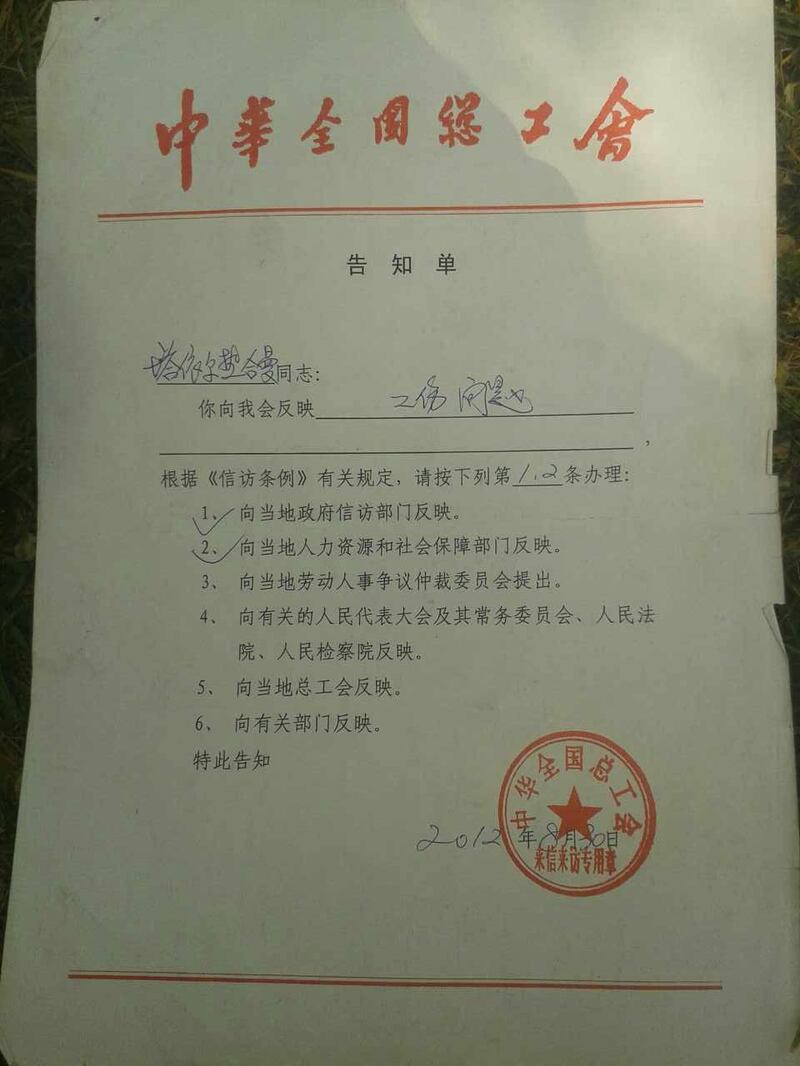 中華全国総工會
告知单
塔依尔热合曼同志：
你向我会反映 工伤问题
，
根据《信访条例》有关规定，请按下列第1.2条办理：
1、向当地政府信访部门反映。
2、向当地人力资源和社会保障部门反映。
3、向当地劳动人事争议仲裁委员会提出。
4、向有关的人民代表大会及其常务委员会、人民法
院、人民检察院反映。
5、向当地总工会反映。
6、向有关部门反映。
特此告知
中华全国总工会
2012年8月30日
来信来访专用章